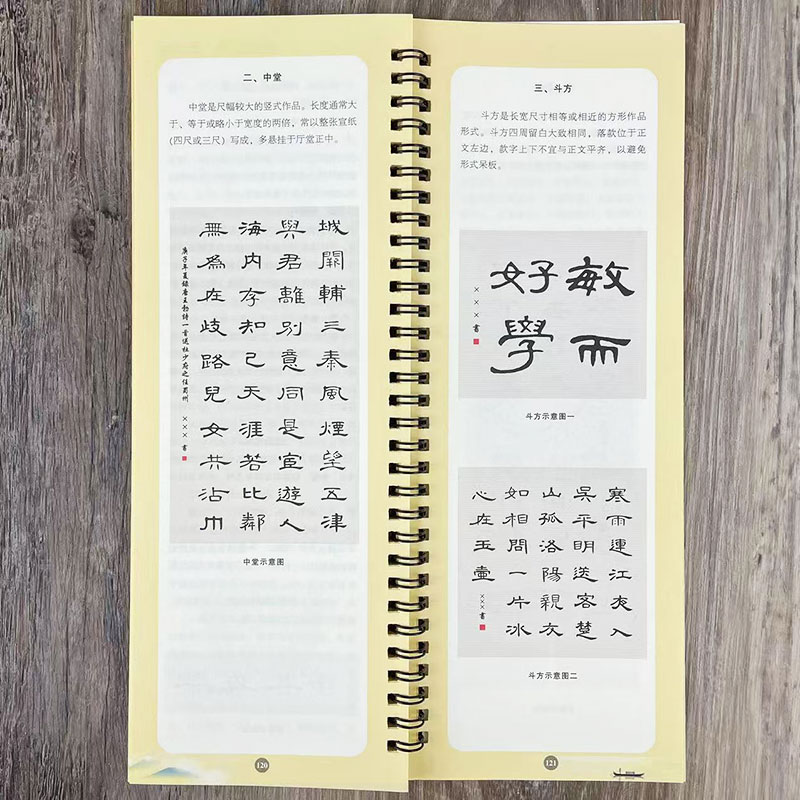 二、中堂
中堂是尺幅较大的竖式作品。长度通常大
于、等于或略小于宽度的两倍，常以整张宣纸
(四尺或三尺）写成，多悬挂于厅堂正中。
城闕輔三秦風煙望五津
與君離別意同是宦遊人
海内存知己天涯若比鄰
無為在歧路兒女共沾巾
庚子年夏録唐王勃詩一首送杜少府之任蜀州 ×××書
中堂示意图
120
三、斗方
斗方是长宽尺寸相等或相近的方形作品
形式。斗方四周留白大致相同，落款位于正
文左边，款字上下不宜与正文平齐，以避免
形式呆板。
敏而
好學
×××書
斗方示意图一
寒雨連江夜入
吳平明送客楚
山孤洛陽親友
如相問一片冰
心在玉壺
×××書
斗方示意图二
121